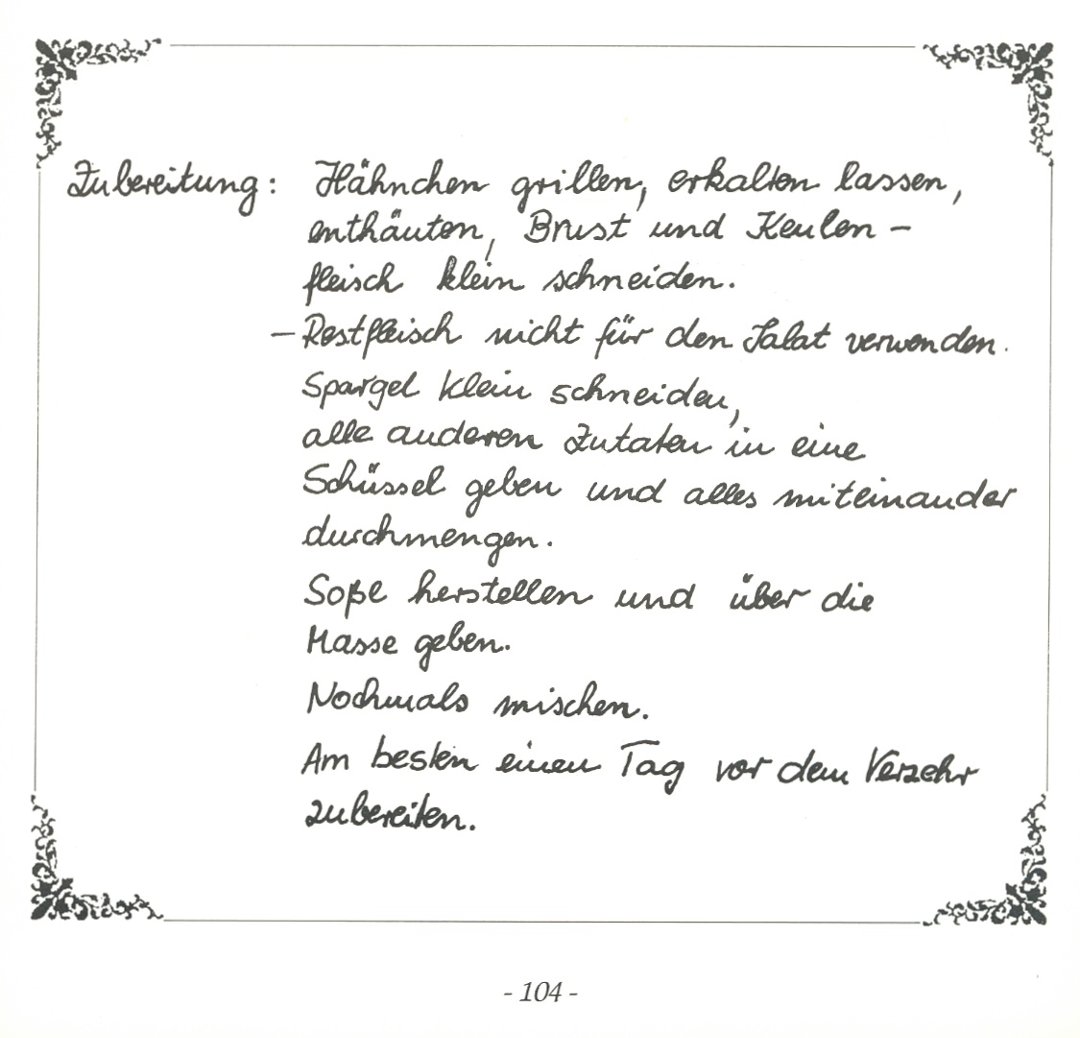 Zubereitung: Hähnchen grillen, erkalten lassen,
enthäuten, Brust und Keulen-
fleisch klein schneiden.
- Restfleisch nicht für den Salat verwenden.
Spargel klein schneiden,
alle anderen Zutaten in eine
Schüssel geben und alles miteinander
durchmengen.
Soße herstellen und über die
Masse geben.
Nochmals mischen.
Am besten einen Tag vor dem Verzehr
zubereiten.
- 104 -